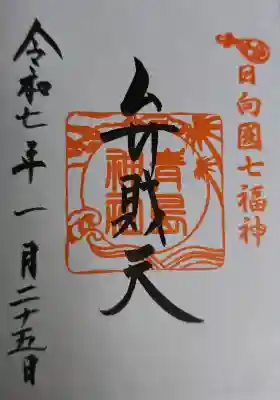 日向國七福神
弁財天
青島神社
令和七年一月二十五日